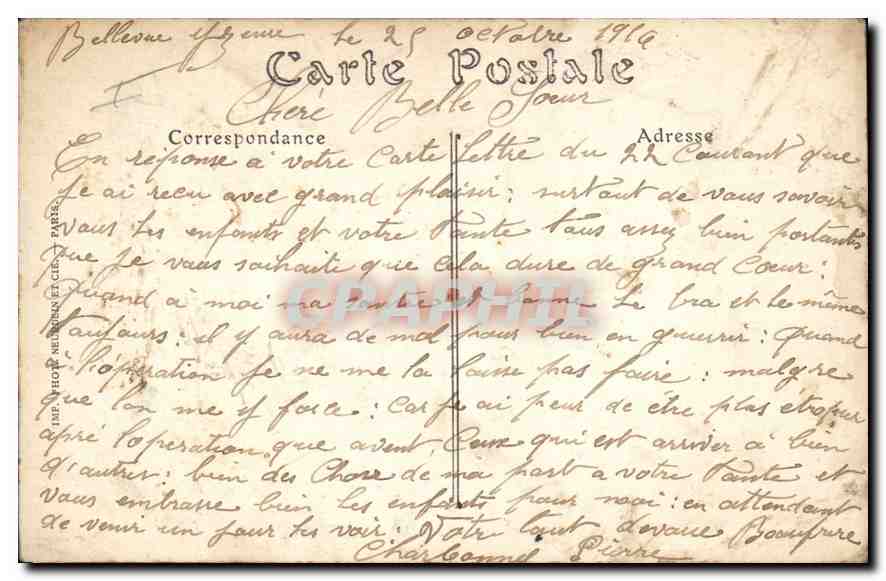 Bellevue le 25 octobre 1916
Carte Postale
Chère Belle Sœur
Correspondance
Adresse
En réponse à votre Carte Lettre du 22 Courant que
je ai recu avec grand plaisir : surtout de vous savoir
vous les enfants et votre Tante tous assez bien portants
que je vous souhaite que cela dure de grand Cœur :
Quand à moi ma santée est bonne le bra et le même
toujours : il y aura de mal pour bien en guerrir : Quand
à l'opération je ne me la laisse pas faire : malgre
que l'on me y force : car je ai peur de être plus étropier
apré l'operation que avent, Ceux qui est arriver à bien
d'autres : bien des Chose de ma part a votre Tante et
vous embrasse bien les enfants pour moi : en attendant
de venir un jour les voir : Votre tout devoue Beaufrere
Charbonnel Pierre
IMP. PHOT. NEURDEIN ET CIE. — PARIS.
CPAPHIL